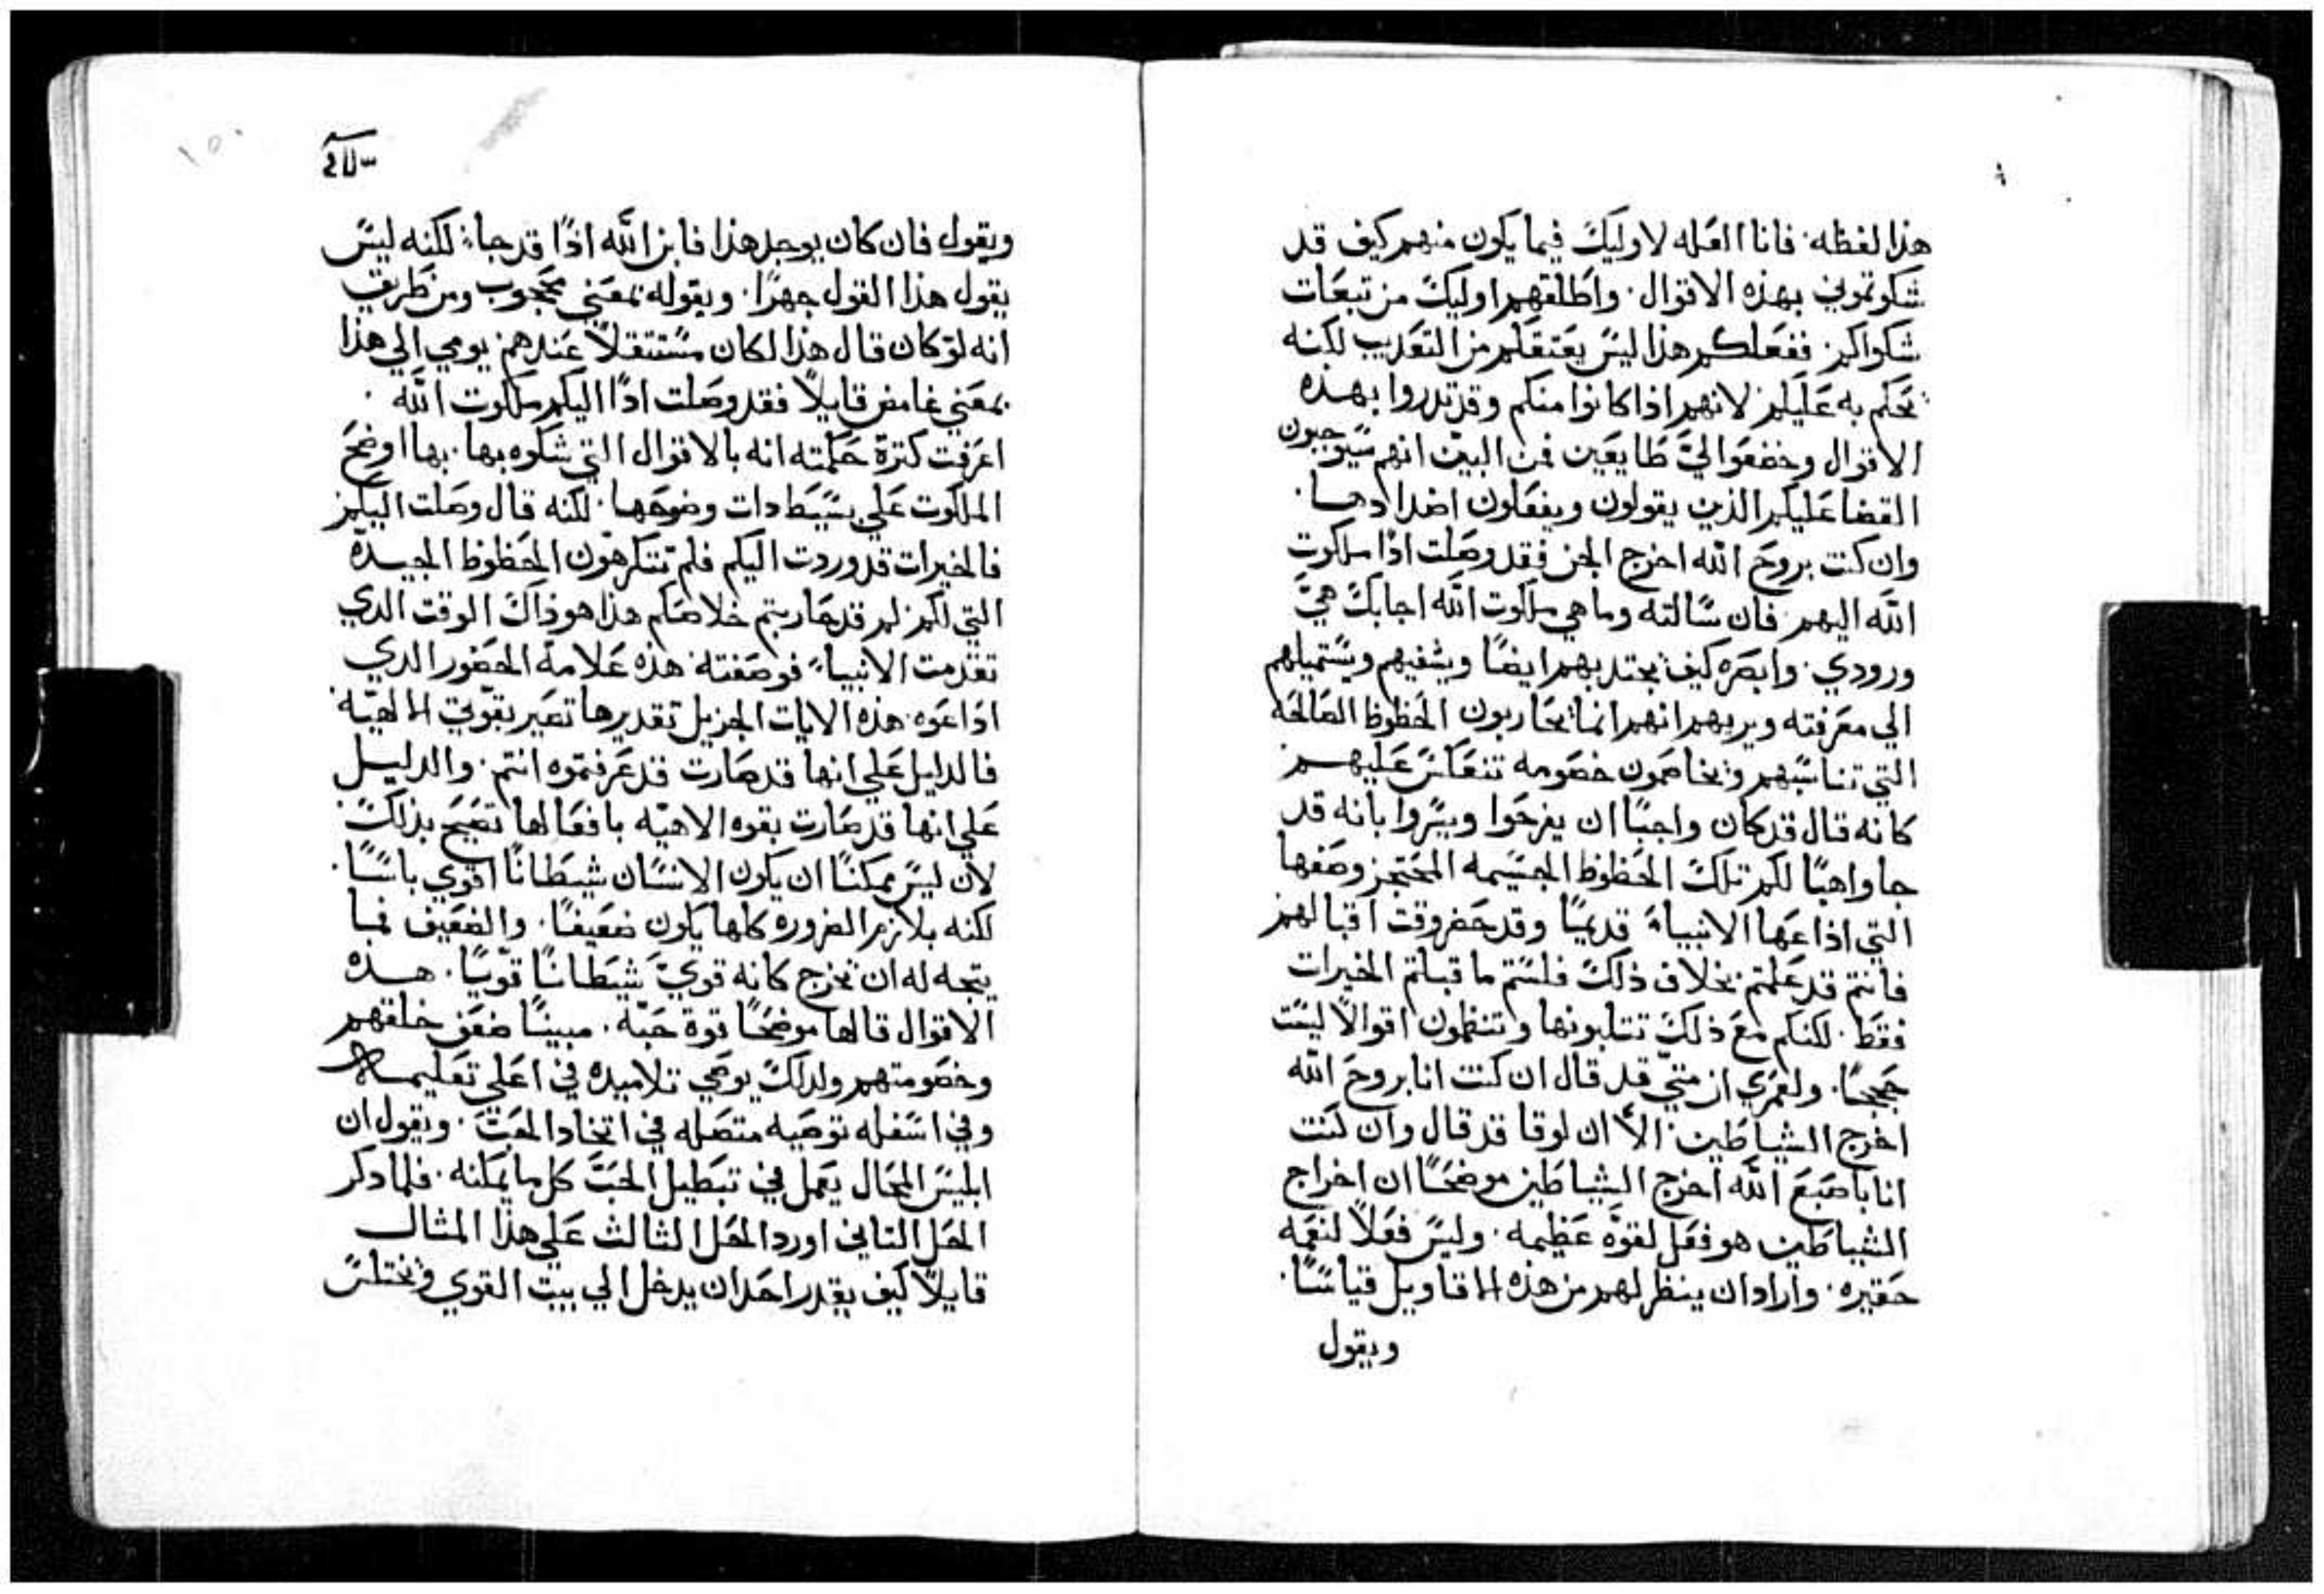 هذا لفظه. فانا افعله لاوليك فيما يكون منهم كيف قد
شكوتموني بهذه الاقوال. واطلقهم اوليك من تبعات
شكواكم. ففعلكم هذا ليس يعتقلم من التعديب لكنه
يحكم به عليكم. لانهم اذا كانوا منكم وقد تدروا بهذه
الاقوال وخضعوا اليَّ طايعين فمن البيّن انهم سيوجبون
القضا عليكم الذين يقولون ويفعلون اضدادها.
وان كنت بروح الله اخرج الجن فقد وصلت اذًا ملكوت
الله اليهم. فان سالته وما هي ملكوت الله اجابك هيَّ
ورودي. وابصره كيف يجتدبهم ايضًا ويشفيهم ويستميلهم
الي معرفته ويريهم انهم انما يحاربون الحظوظ الصالحه
التي تناسبهم ويخاصمون خصومه تنعكس عليهم
كانه قال قد كان واجبًا ان يفرحوا ويسروا بانه قد
جا واهبًا لكم تلك الحظوظ الجسيمه المحتجز وصفها
التي اذاعها الانبياء قديمًا وقد حضر وقت اقبالهم
فانتم قد عملتم بخلاف ذلك فلستم ما قبلتم الخيرات
فقط. لكنكم مع ذلك تتلبونها وتنظمون اقوالًا ليست
حججًا. ولعمري ان متيّ قد قال ان كنت انا بروح الله
اخرج الشياطين. الّا ان لوقا قد قال وان كنت
انا باصبع الله اخرج الشياطين موضحًا ان اخراج
الشياطين هو فعل لقوّه عظيمه. وليس فعلًا لنعمه
حقيره. واراد ان ينظر لهم من هذه الاقاويل قياسًا.
ويقول
ويقول فان كان يوجد هذا فابن الله اذًا قد جاء. لكنه ليس
يقول هذا القول جهرًا. ويقوله بمعني محجوب ومن طريق
انه لو كان قال هذا لكان مستثقلًا عندهم يومي الي هذا
بمعني غامض قايلًا فقد وصلت اذًا اليكم ملكوت الله.
اعرفت كثرة حكمته انه بالاقوال التي شكوه بها. بها اوضح
الملكوت علي بسيط دات وضوحها. لكنه قال وصلت اليكم
فالخيرات قد وردت اليكم فلم تتكرهون الحظوظ الجيدّه
التي لكم لم قد صاريتم خلاصكم هذا هو ذاك الوقت الدي
تقدمت الانبياء فوصفته. هذه علامة الحضور الدي
اداعوه. هذه الايات الجزيل تقديرها تصير بقوّتي الالهيّه.
فالدليل علي انها قد صارت قد عرفتموه انتم. والدليل
علي انها قد صارت بقوه الاهيّه بافعالها تصيح بذلك.
لان ليس ممكنًا ان يكون الانسان شيطانًا اقوي باسًا.
لكنه بلازم الضروره كلها يكون ضعيفًا. والضعيف فما
يتجه له ان يخرج كانه قويّ شيطانًا قوّيًا. هذه
الاقوال قالها موضحًا قوة حبّه. مبينًا ضعف خلفهم
وخصومتهم ولدلك يوصي تلاميده في اعلي تعليمه
وفي اسفله توصيه متصله في اتخاد المحبّ. ويقول ان
ابليس المحال يعمل في تبطيل الحبّ كل ما يمكنه. فلما دكر
الحل التاني اورد الحل الثالث علي هذا المثال
قايلًا كيف يقدر احد ان يدخل الي بيت القوي ويختلس